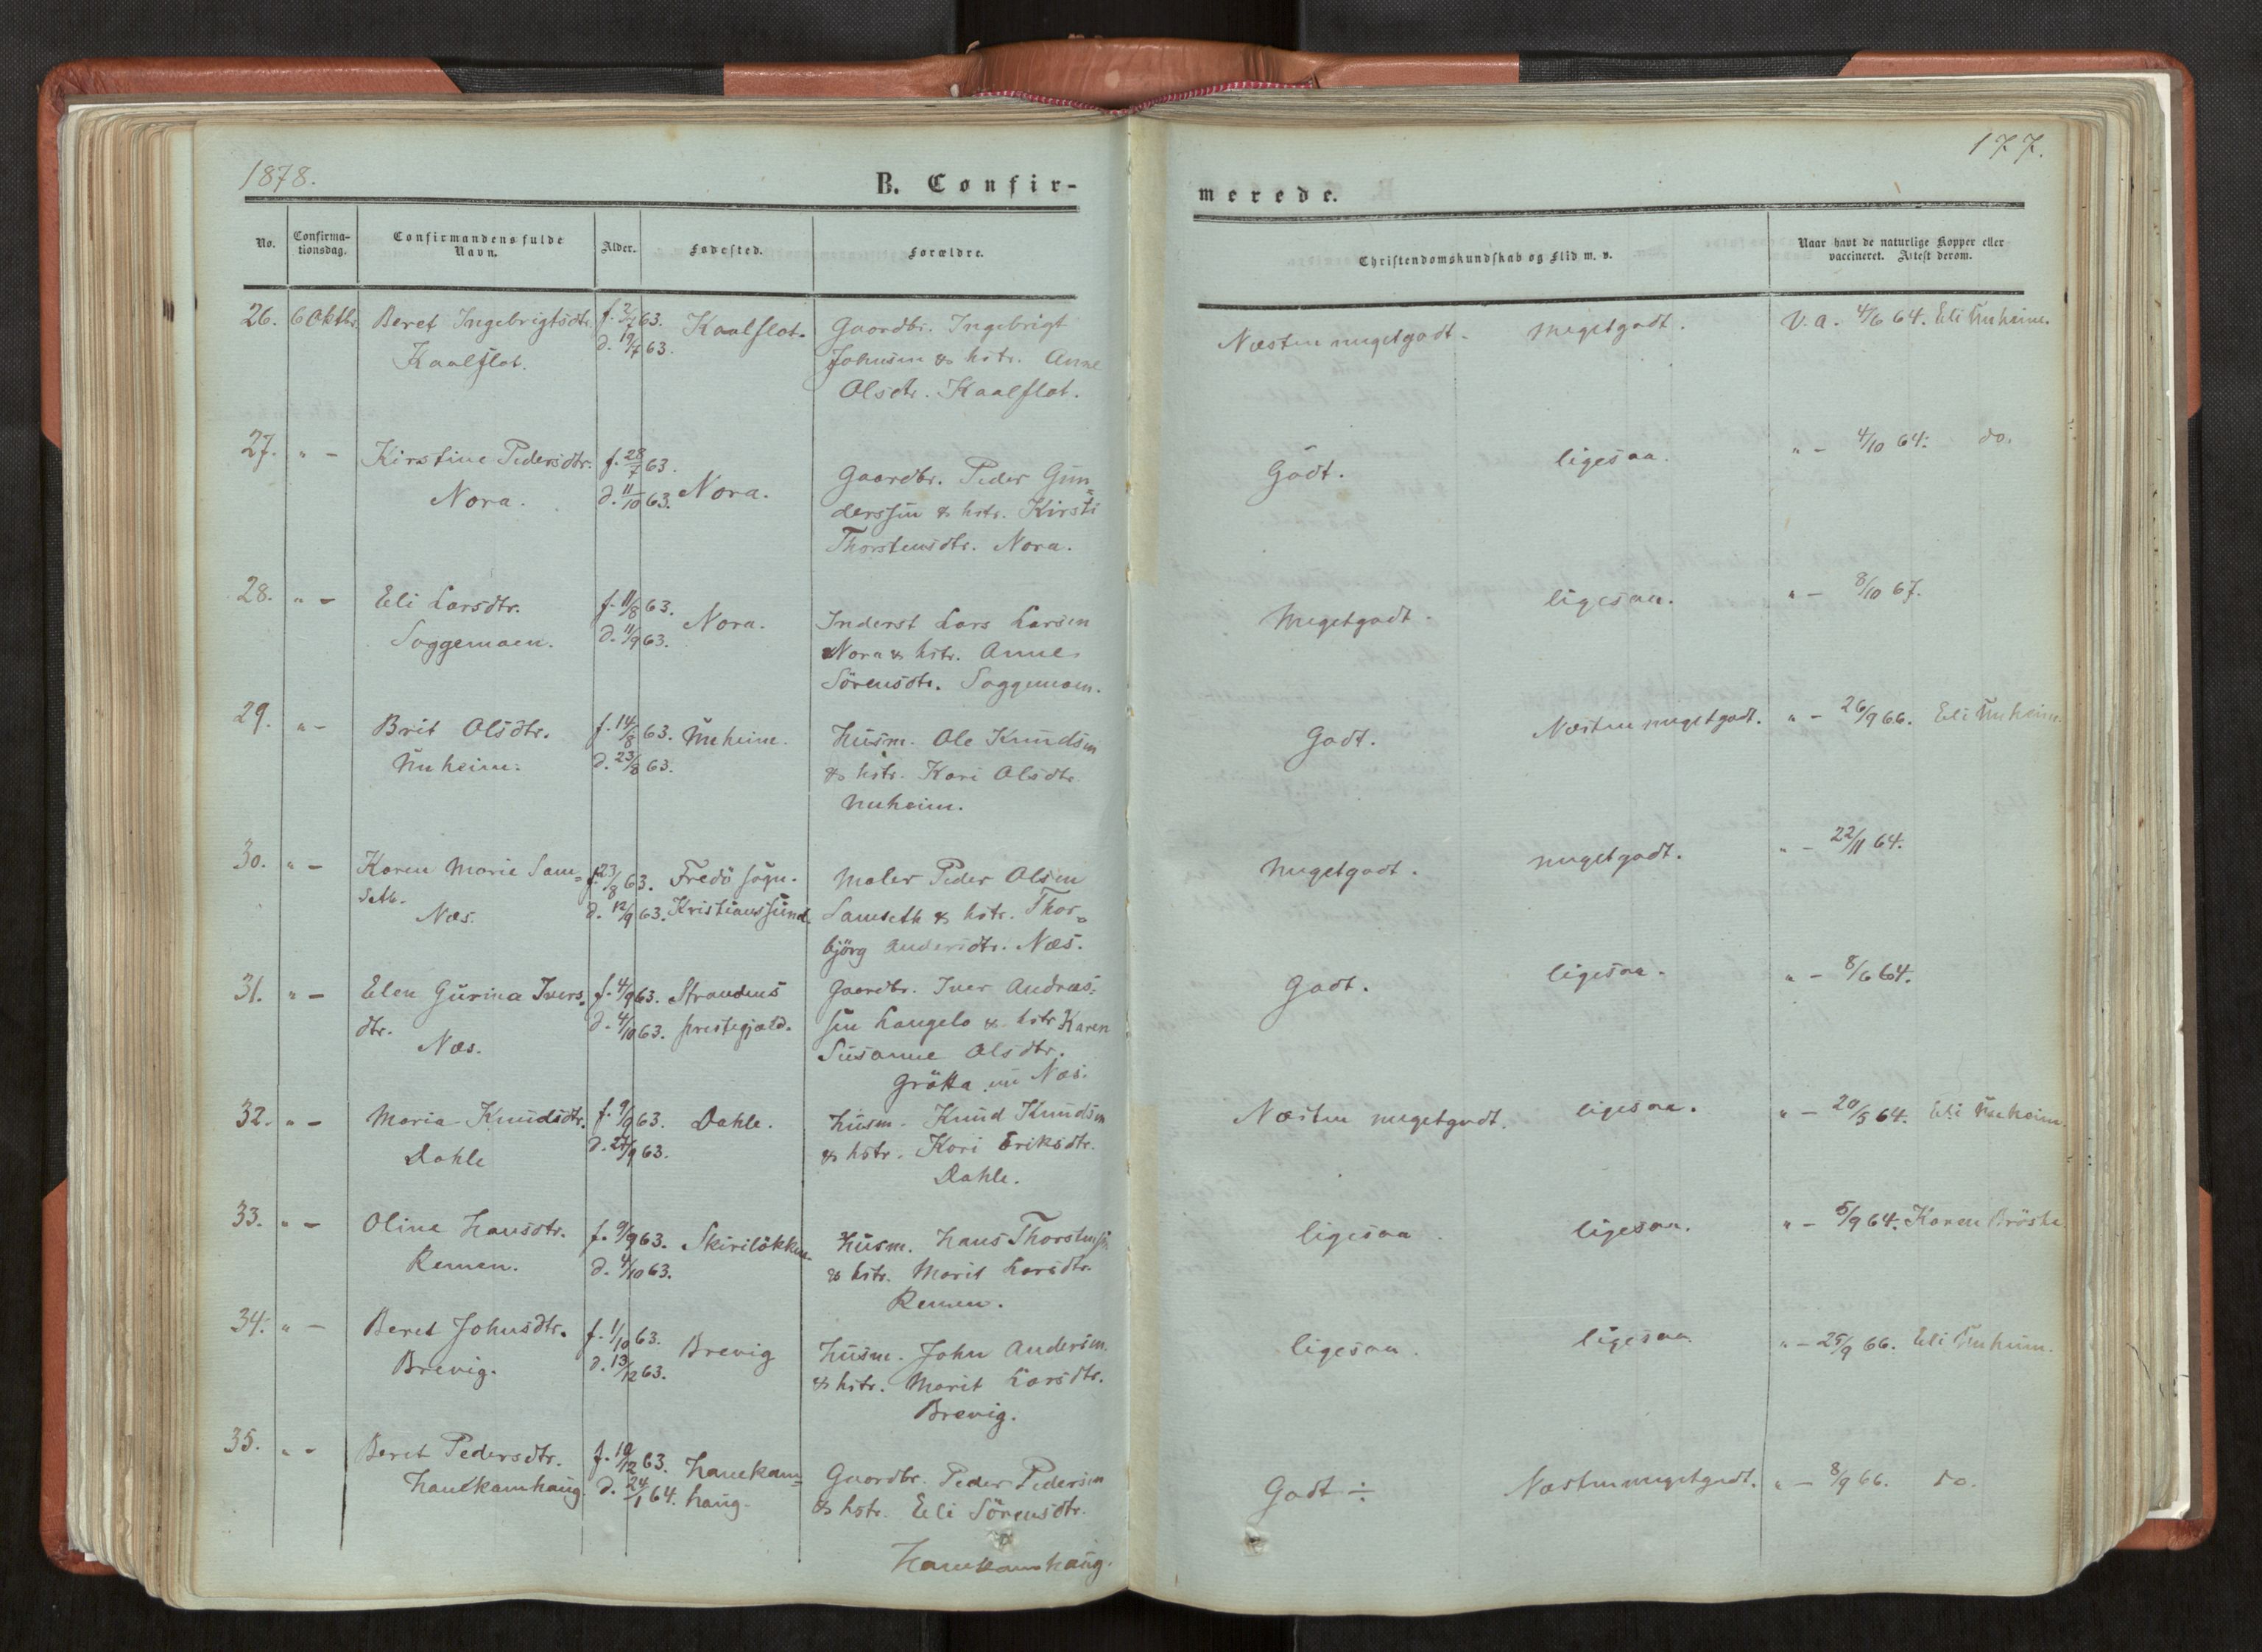 1878.
B. Confir-
No.
Confirma-
tionsdag.
Confirmandens fulde
Navn.
Alder.
Fødested.
Forældre.
26. 6 Oktbr. Beret Ingebrigtsdtr. f. 2/7 63. Kaalflot. Gaardbr. Ingebrigt
Kaalflot. d. 19/7 63. Johnsen & hstr. Anne
Olsdtr. Kaalflot.
27. " - Kirstine Pedersdtr. f. 28/7 63. Nora. Gaardbr. Peder Gun=
Nora. d. 11/10 63. derssen & hstr. Kirsti
Thorstensdtr. Nora.
28. " - Eli Larsdtr. f. 11/8 63. Nora. Inderst Lars Larsen
Soggemoen. d. 11/9 63. Nora & hstr. Anne
Sörensdtr. Soggemoen.
29. " - Brit Olsdtr. f. 14/8 63. Unheim. Husm. Ole Knudsen
Unheim. d. 23/8 63. & hstr. Kari Olsdtr.
Unheim.
30. " - Karen Marie Sam= f. 23/8 63. Fredö sogn. Maler Peder Olsen
seth. d. 12/9 63. Kristianssund. Samseth & hstr. Thor=
Næs. björg Andersdtr. Næs.
31. " - Elen Gurina Ivers= f. 4/9 63. Strandens Gaardbr. Iver Andreas=
dtr. d. 4/10 63. prestegjæld. sen Langelo & hstr. Karen
Næs. Susanne Olsdtr.
Grötta nu Næs.
32. " - Maria Knudsdtr. f. 9/9 63. Dahle. Husm. Knud Knudsen
Dahle d. 27/9 63. & hstr. Kari Eriksdtr.
Dahle.
33. " - Oline Hansdtr. f. 9/9 63. Skirilökken. Husm. Hans Thorstensen
Remen. d. 4/10 63. & hstr. Marit Larsdtr.
Remen.
34. " - Beret Johnsdtr. f. 1/10 63. Brevig Husm. John Andersen
Brevig. d. 13/12 63. & hstr. Marit Larsdtr.
Brevig.
35. " - Beret Pedersdtr. f. 10/12 63. Hanekam= Gaardbr. Peder Pedersen
Hanekamhaug. d. 24/1 64. haug. & hstr. Eli Sörensdtr.
Hanekamhaug.
177.
merede.
Christendomskundskab og Flid m. v.
Naar havt de naturlige Kopper eller
vaccineret. Attest derom.
Næsten megetgodt. megetgodt. V. a. 4/6 64. Eli Unheim.
Godt. ligesaa. " - 4/10 64. do.
Megetgodt. ligesaa. " - 8/10 67.
Godt. Næsten megetgodt. " - 26/9 66. Eli Unheim.
Megetgodt. megetgodt. " - 22/11 64.
Godt. ligesaa. " - 8/6 64.
Næsten megetgodt. ligesaa. " - 20/5 64. Eli Unheim.
ligesaa ligesaa. " - 5/9 64. Karen Bröste
ligesaa. ligesaa. " - 25/9 66. Eli Unheim.
Godt ÷ Næsten megetgodt. " - 8/9 66. do.